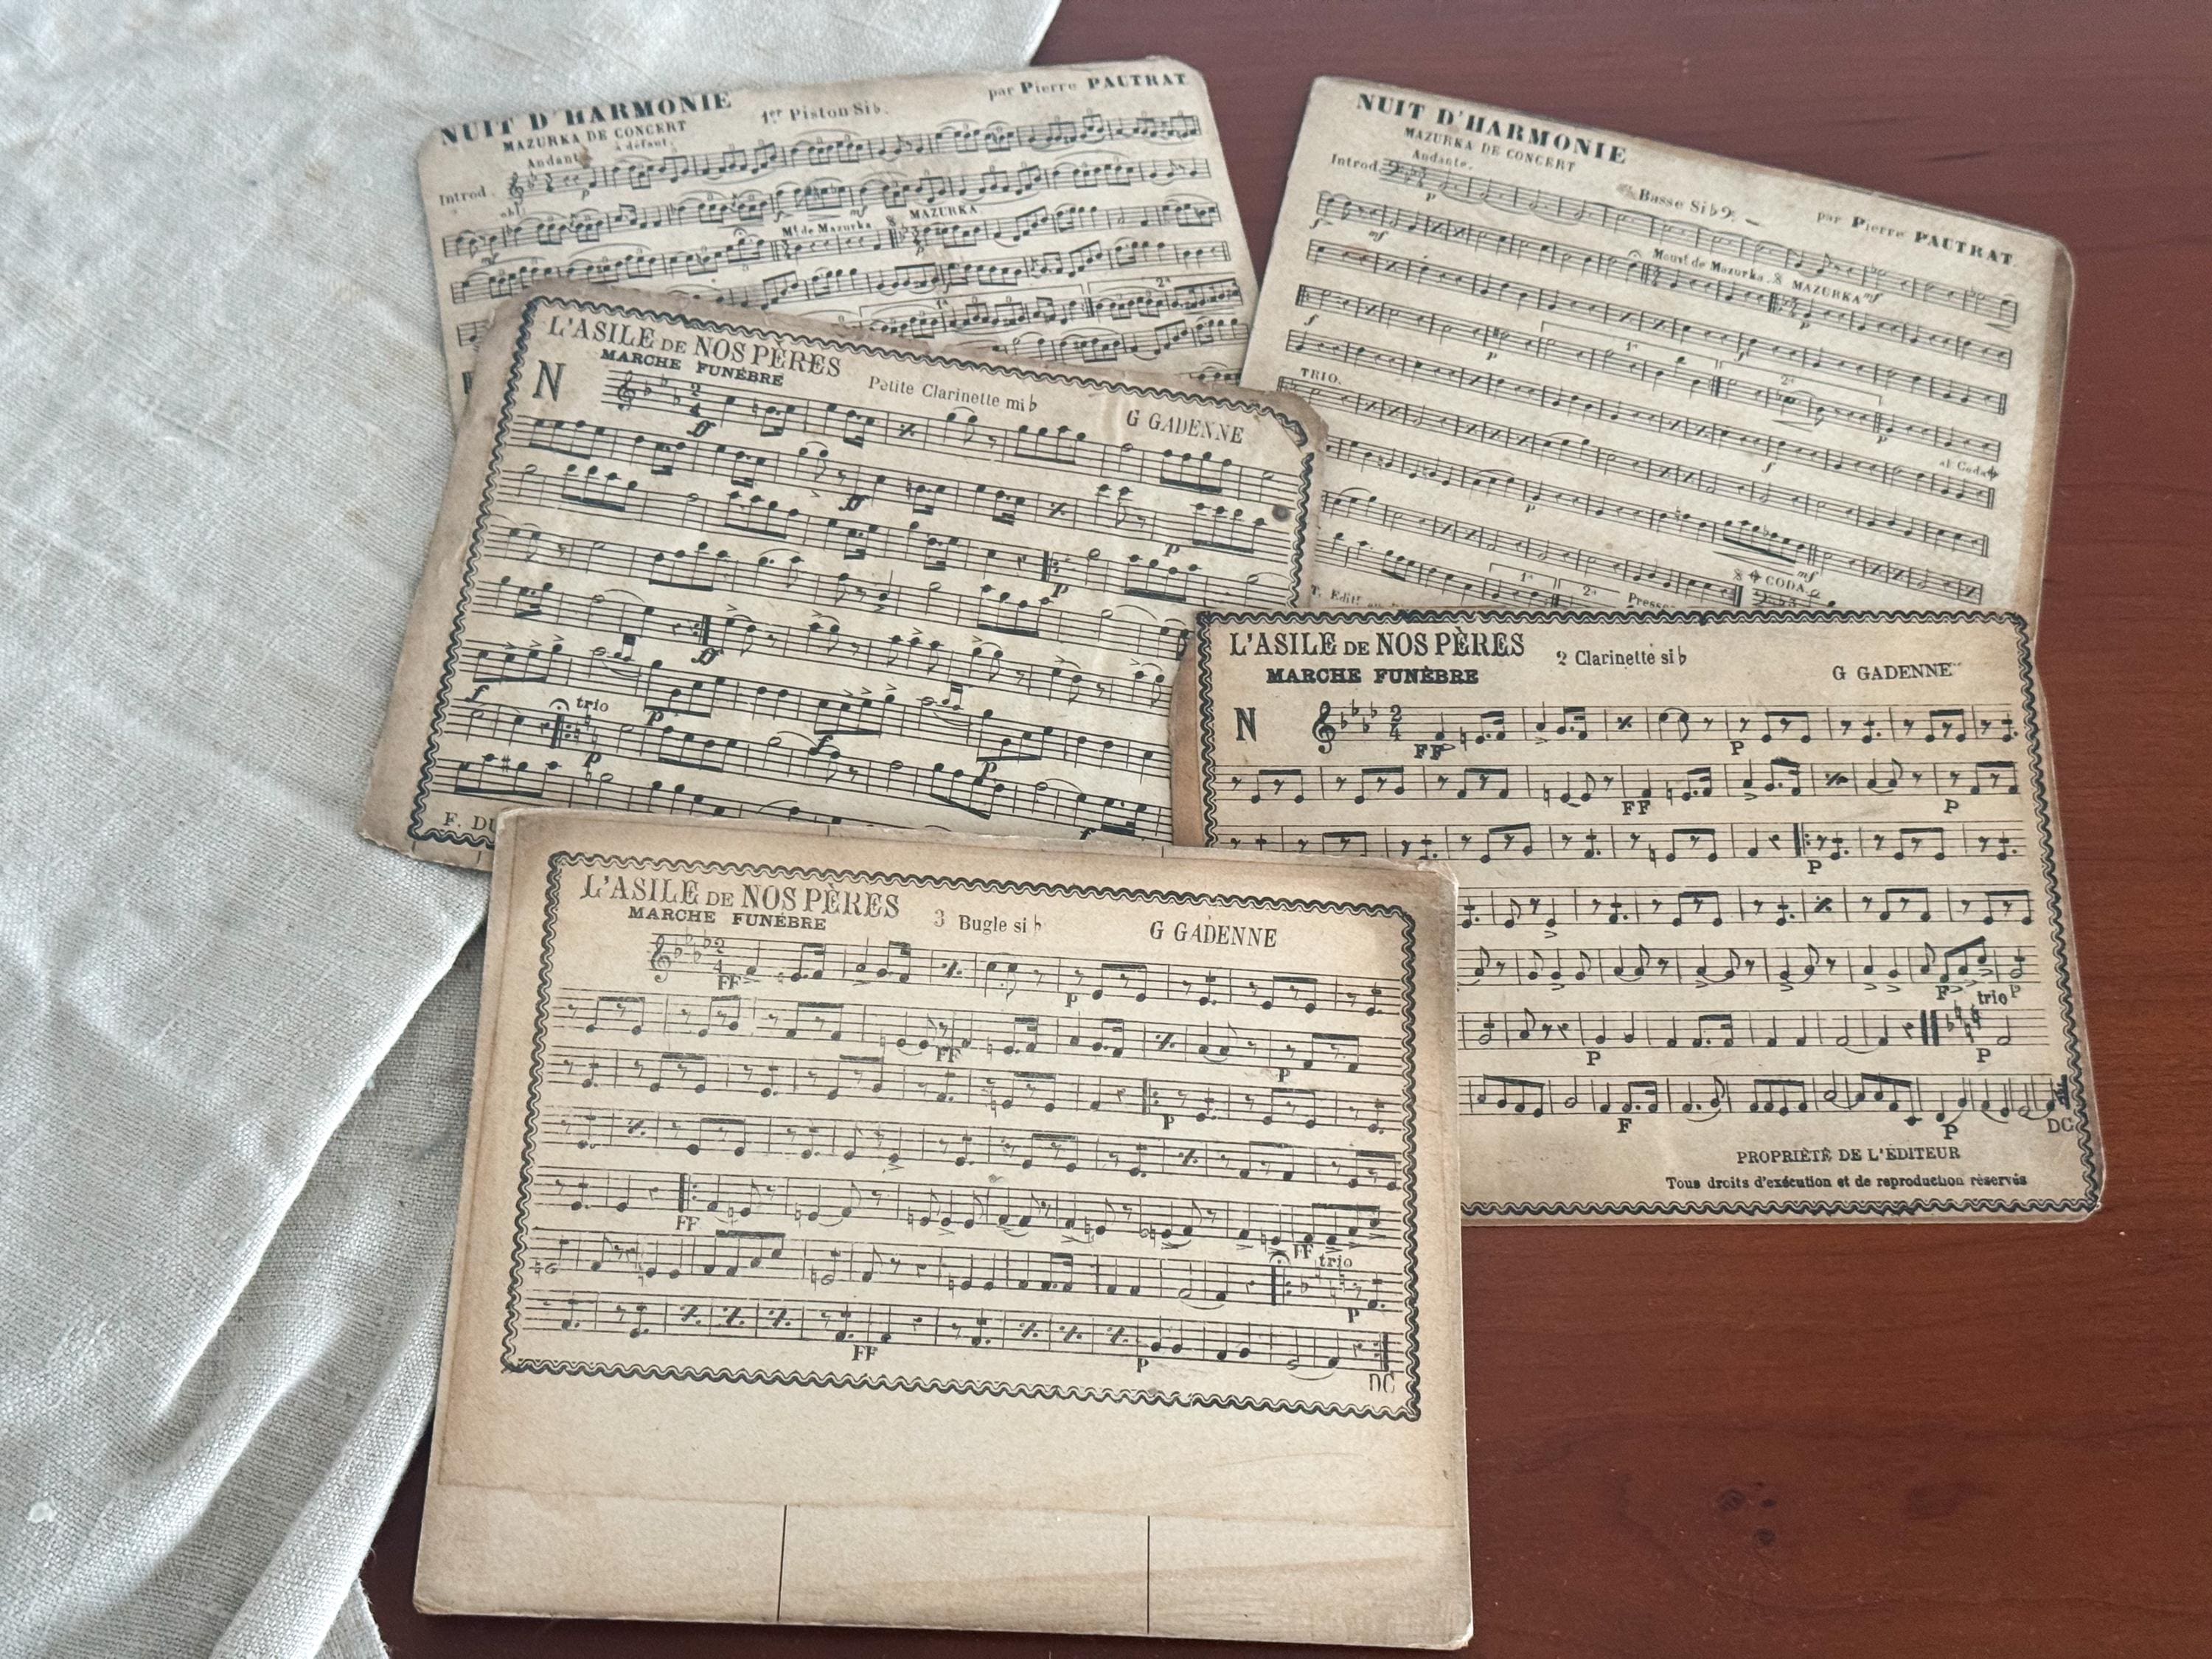 NUIT D'HARMONIE
MAZURKA DE CONCERT
1er Piston Si♭.
par Pierre PAUTRAT
à défaut.
Introd.
p
mf
Mt de Mazurka
MAZURKA
p
1a
2a
NUIT D'HARMONIE
MAZURKA DE CONCERT
Basse Si♭
par Pierre PAUTRAT.
Introd.
Andante.
p
f
mf
Mouvt de Mazurka.
MAZURKA
mf
p
f
p
1a
2a
f
p
TRIO.
al Coda
f
p
mf
CODA
1a
2a
L'ASILE DE NOS PÈRES
MARCHE FUNÈBRE
Petite Clarinette mi♭
G GADENNE
N
2
4
ff
ff
p
p
ff
f
p
trio
p
f
p
f
L'ASILE DE NOS PÈRES
MARCHE FUNÈBRE
2 Clarinette si♭
G GADENNE
N
2
4
FF
P
FF
P
P
F
P
trio
P
P
F
P
DC
PROPRIÉTÉ DE L'ÉDITEUR
Tous droits d'exécution et de reproduction réservés
L'ASILE DE NOS PÈRES
MARCHE FUNÈBRE
3 Bugle si♭
G GADENNE
2
4
FF
P
FF
P
P
FF
FF
trio
P
FF
P
DC